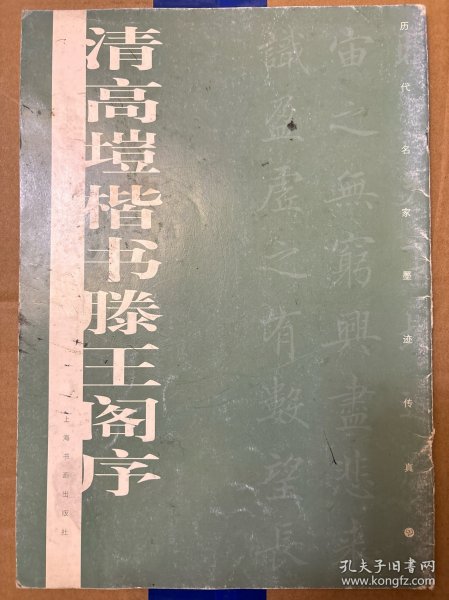 历代名家墨迹传真
宙之無窮興盡悲来
識盈虛之有數望長
清高塏楷书滕王阁序
上海书画出版社
孔夫子旧书网
www.kongfz.com